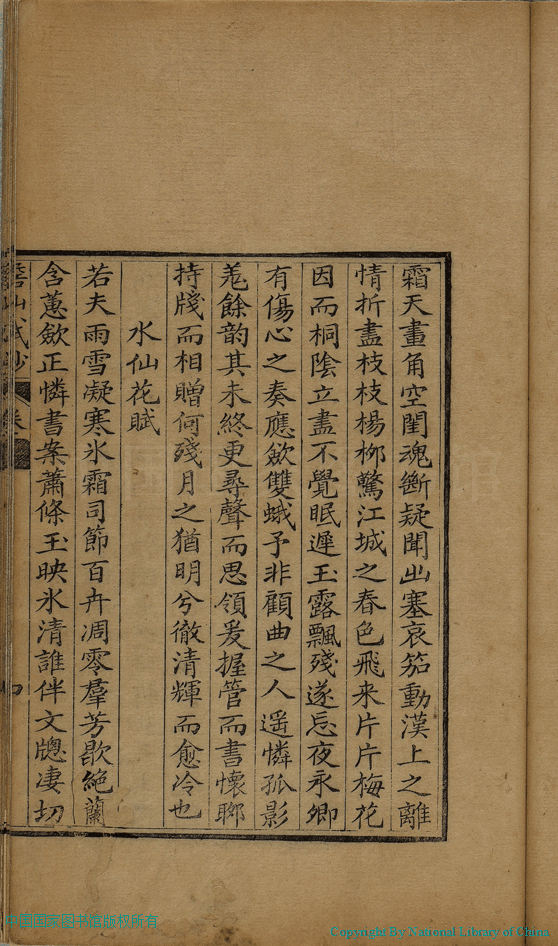 霜天畫角空閨魂斷疑聞出塞哀笳動漢上之離
情折盡枝枝楊栁驚江城之春色飛来片片梅花
因而桐陰立盡不覺眠遲玉露飄殘遂忘夜永卿
有傷心之奏應歛雙蛾予非顧曲之人遥憐孤影
羗餘韵其未終更尋聲而思領爰握管而書懷聊
持牋而相贈何殘月之猶明兮徹清輝而愈冷也
水仙花賦
若夫雨雪凝寒氷霜司節百卉凋零羣芳歇絶蘭
含蕙歛正憐書案蕭條玉映氷清誰伴文牕凄切
四
Copyright By National Library of China